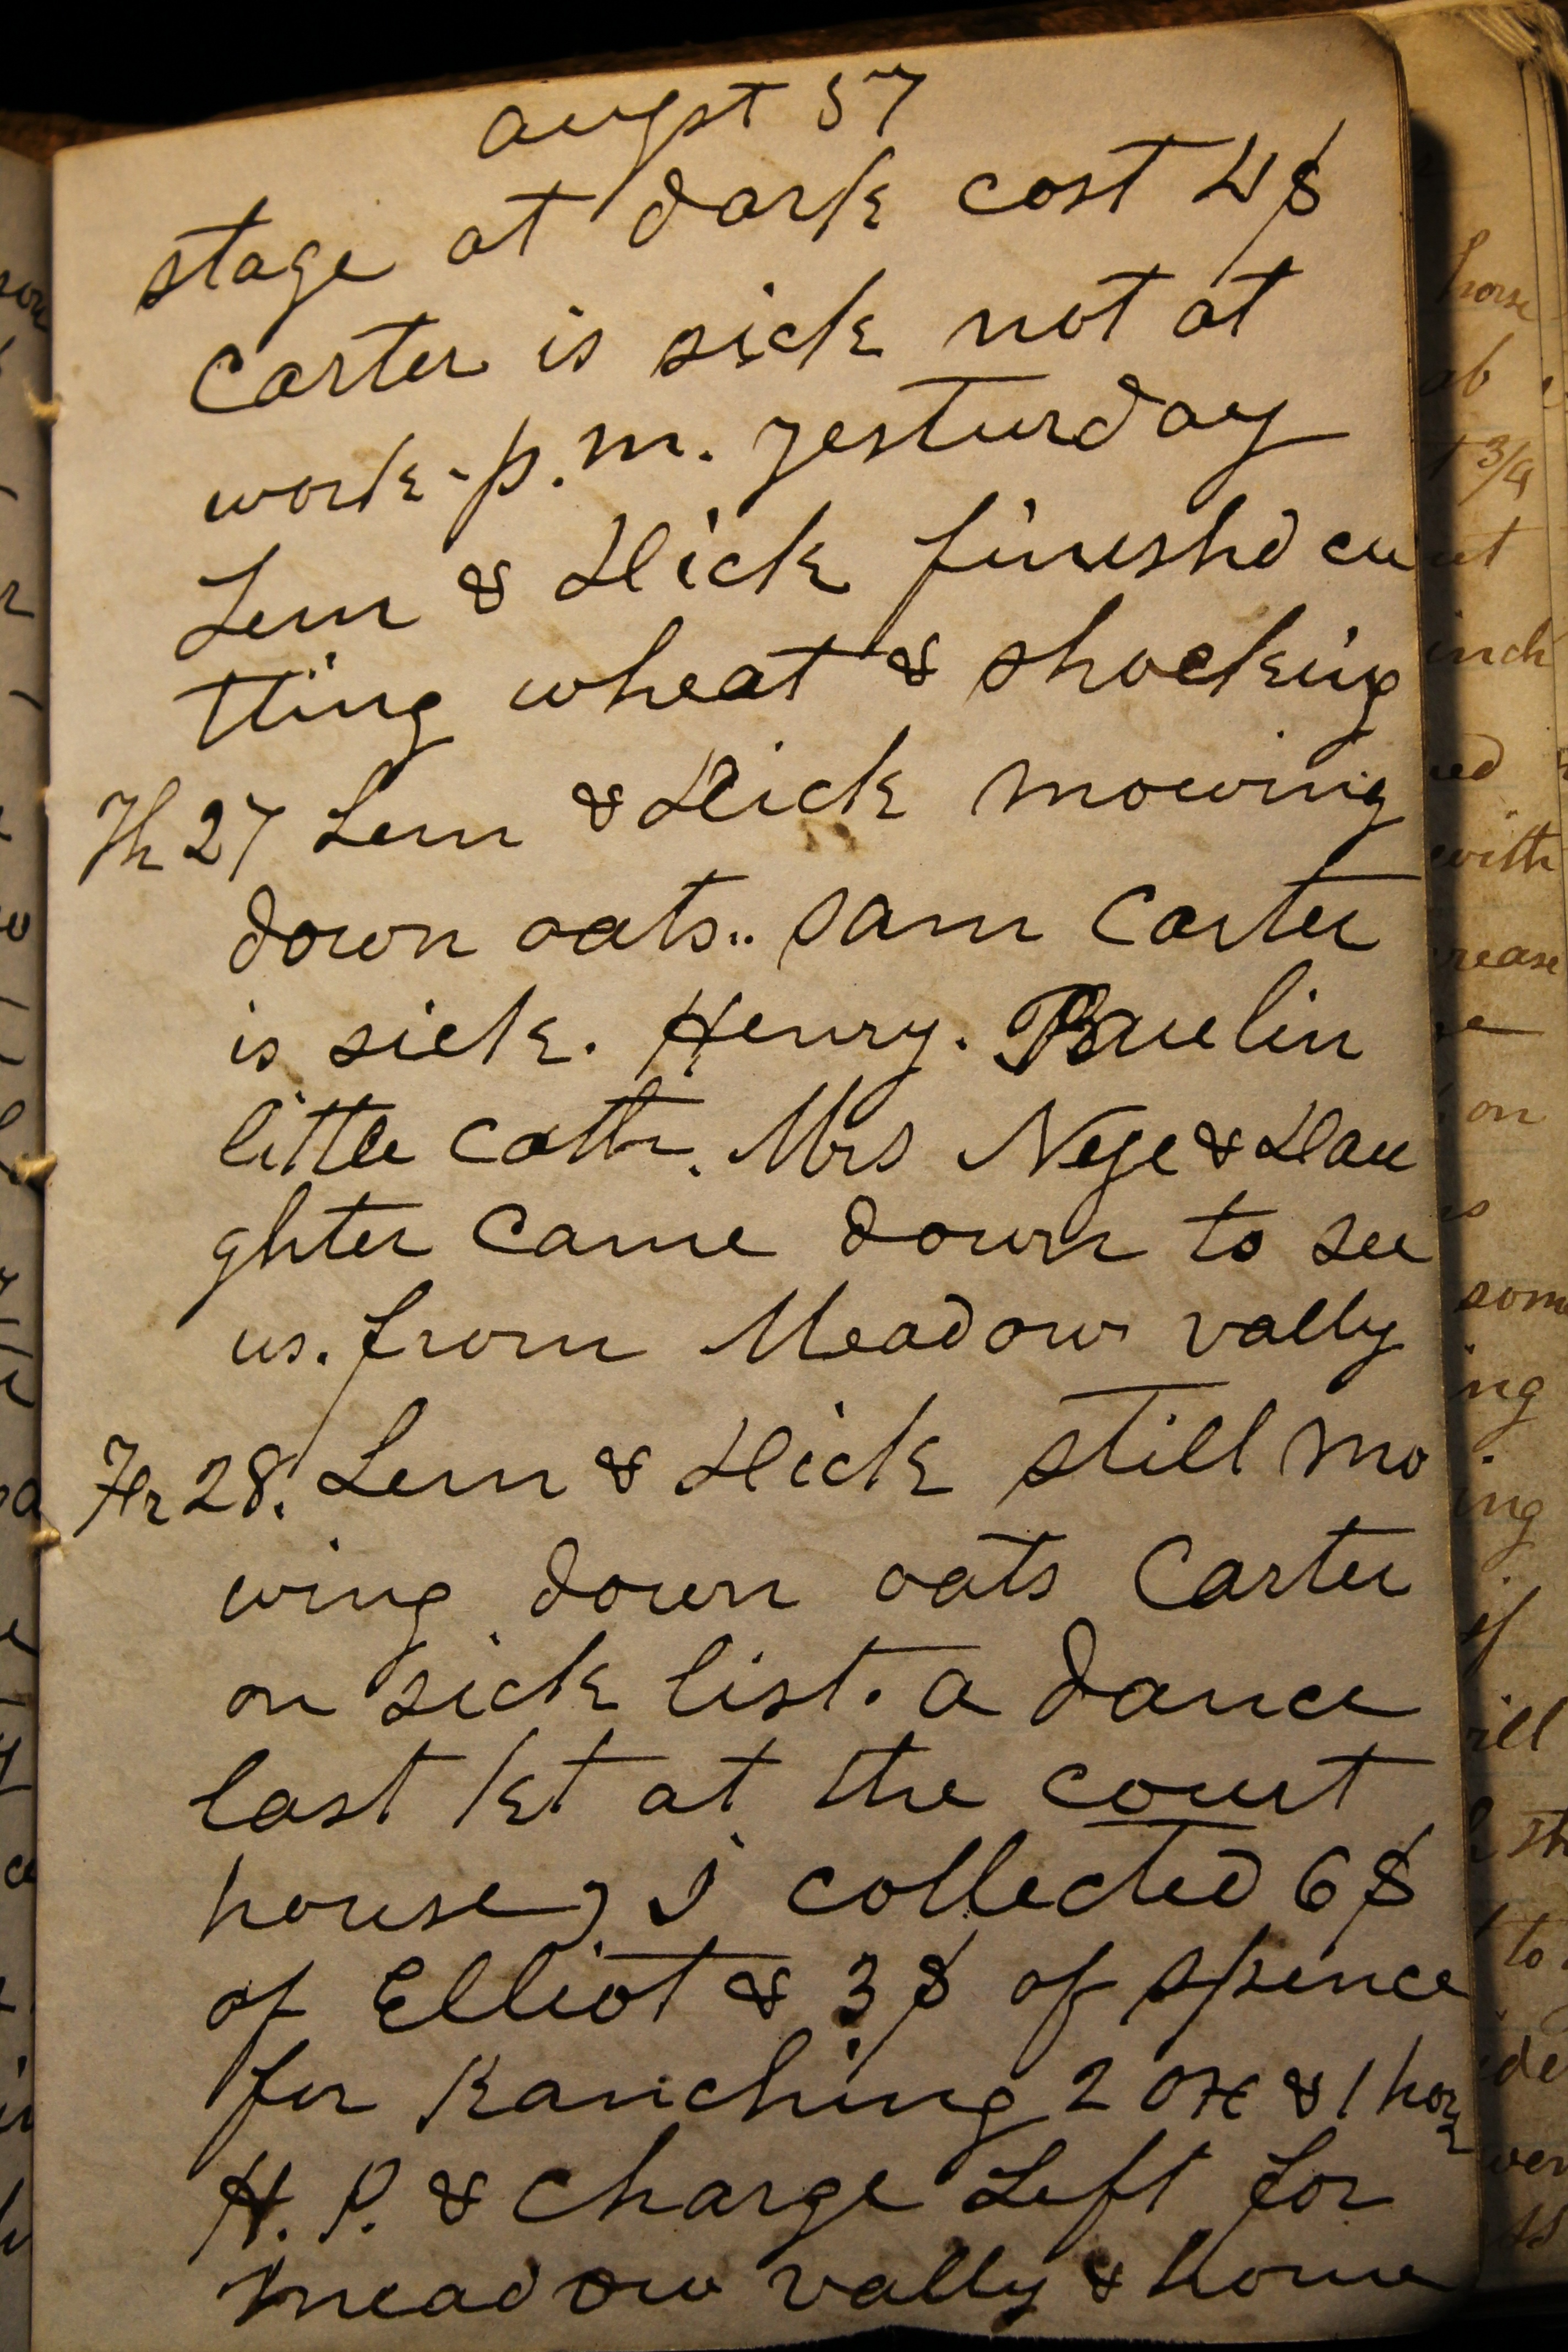 augst 57
stage at dark cost 4$
Carter is sick not at
work - p.m. yesturday
Lem & Dick finishd cu
tting wheat & shocking
Th 27 Lem & Dick mowing
down oats.. Sam Carter
is sick. Henry. Paulin
little cath. Mrs Nye & Dau
ghter came down to see
us. from Meadow vally
Fr 28. Lem & Dick still mo
wing down oats Carter
on sick list. a dance
last at the court
house, I collected 6$
of Elliot & 3$ of Spence
for Ranching 2 oxe & 1 hors
H. P. & charge Left for
meadow vally & home
horse
3/4
inch
with
on
som
ing
ing
if
to